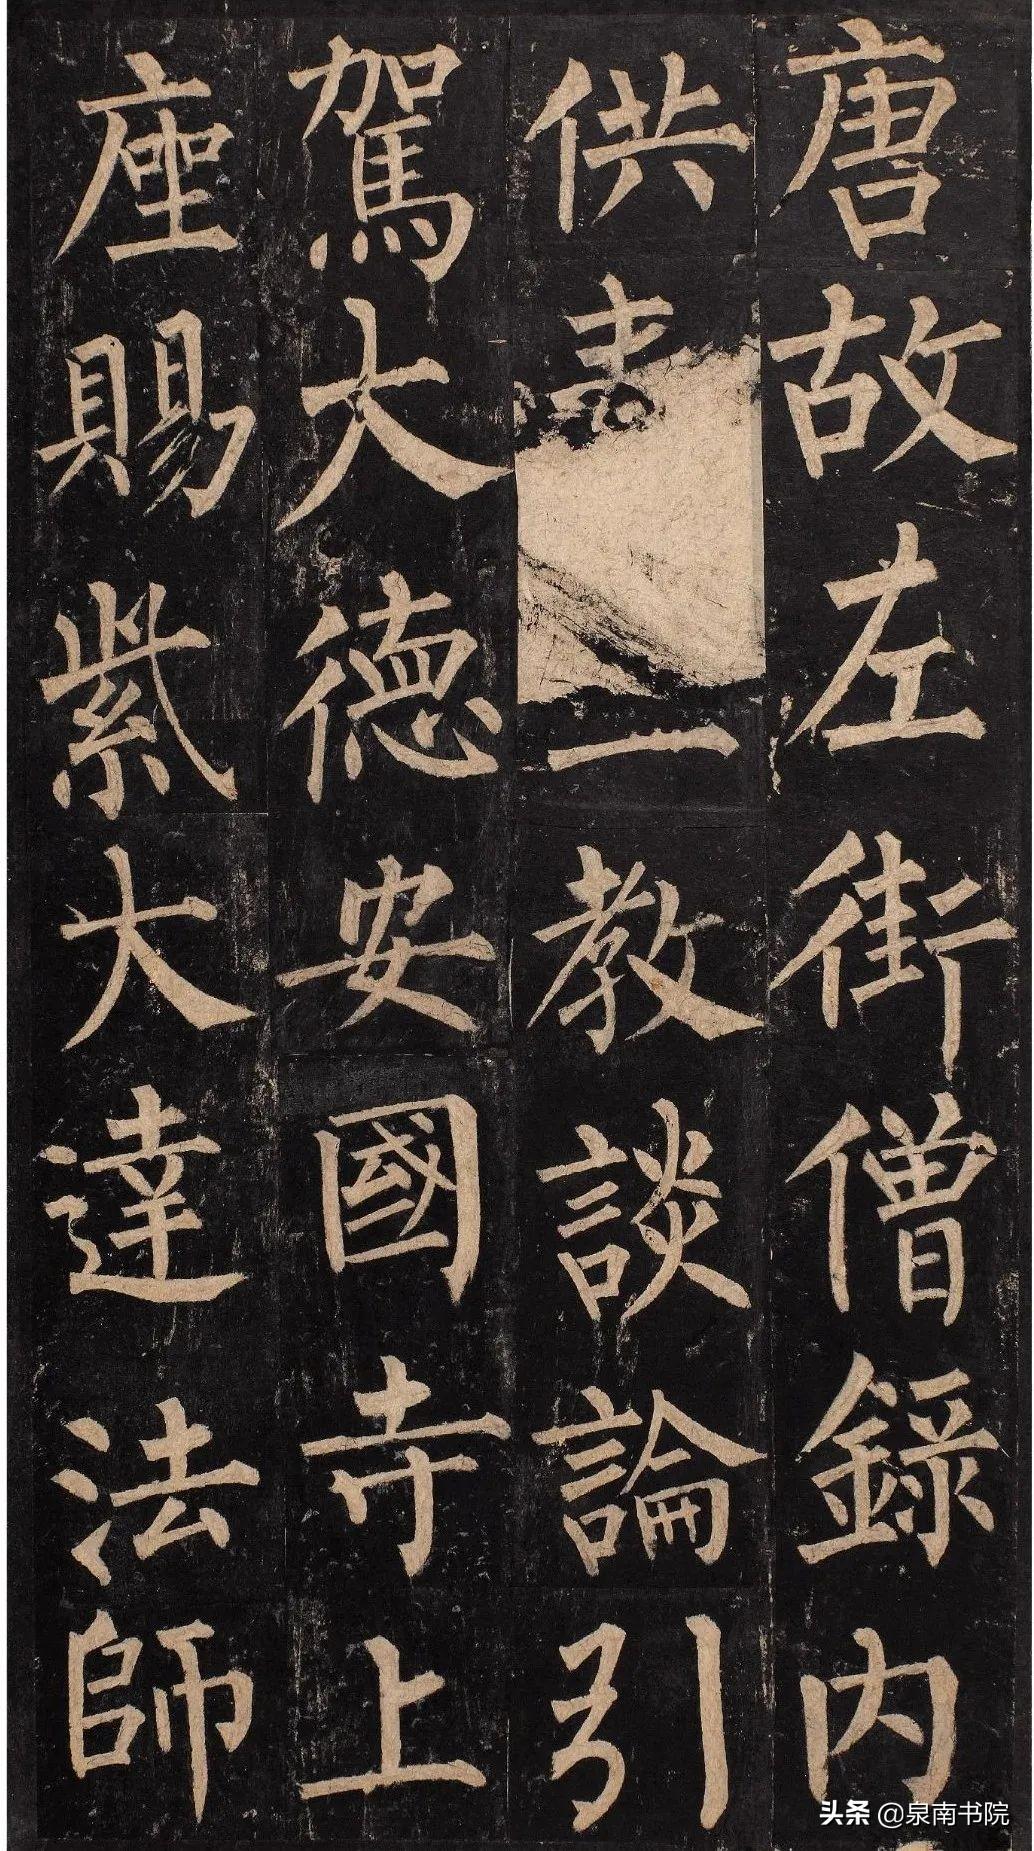 唐故左街僧錄內
供一教談論引
駕大德安國寺上
座賜紫大達法師
头条 @泉南书院